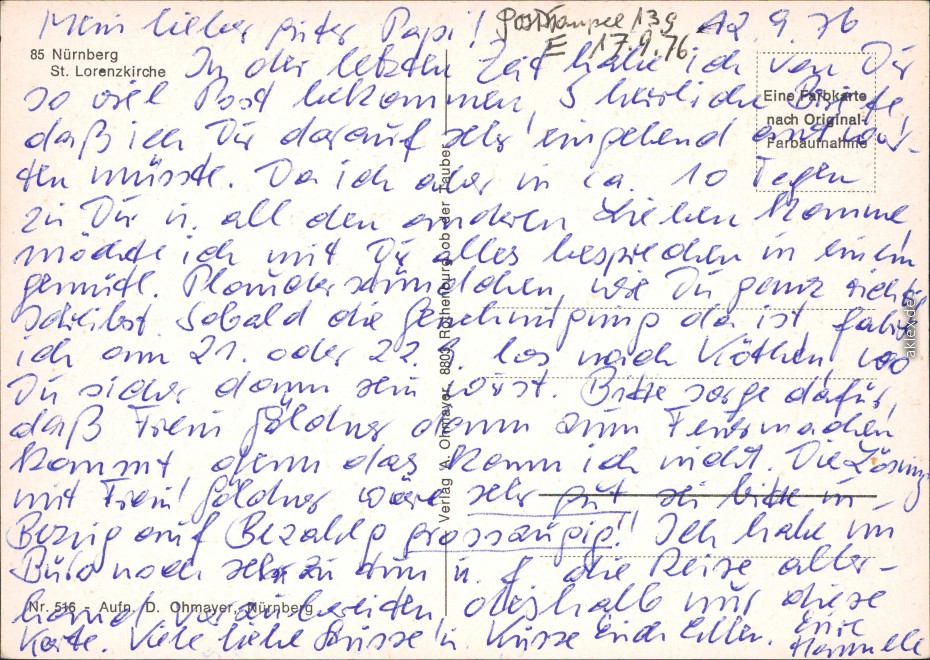 Mein lieber guter Papi! Poststempel 139 12.9.76
E 17.9.76
85 Nürnberg
St. Lorenzkirche
In der letzten Zeit habe ich von Dir
so viel Post bekommen, 3 herzliche Briefe,
daß ich Dir darauf sehr eingehend antwor-
ten müsste. Da ich aber in ca. 10 Tagen
zu Dir u. all den anderen Lieben komme,
möchte ich mit Dir alles besprechen in einem
gemütl. Plauderstündchen, wie Du ganz richtig
schreibst. Sobald die Genehmigung da ist fahre
ich am 21. oder 22.9. los nach Köthen, wo
Du sicher dann sein wirst. Bitte sorge dafür,
daß Frau Göldner dann zum Feuermachen
kommt denn das kann ich nicht. Die Lösung
mit Frau Göldner wäre sehr gut sei bitte in
Bezug auf Bezahlg grosszügig!! Ich habe im
Büro noch sehr zu tun u. f. die Reise aller-
hand vorzubereiten, deshalb nur diese
Karte. Viele liebe Grüsse u. Küsse Euch Allen. Eure
Hannele
Eine Farbkarte
nach Original-
Farbaufnahme
Verlag A. Ohmayer, 8803 Rothenburg ob der Tauber
Nr. 516 - Aufn. D. Ohmayer, Nürnberg
aklex.de